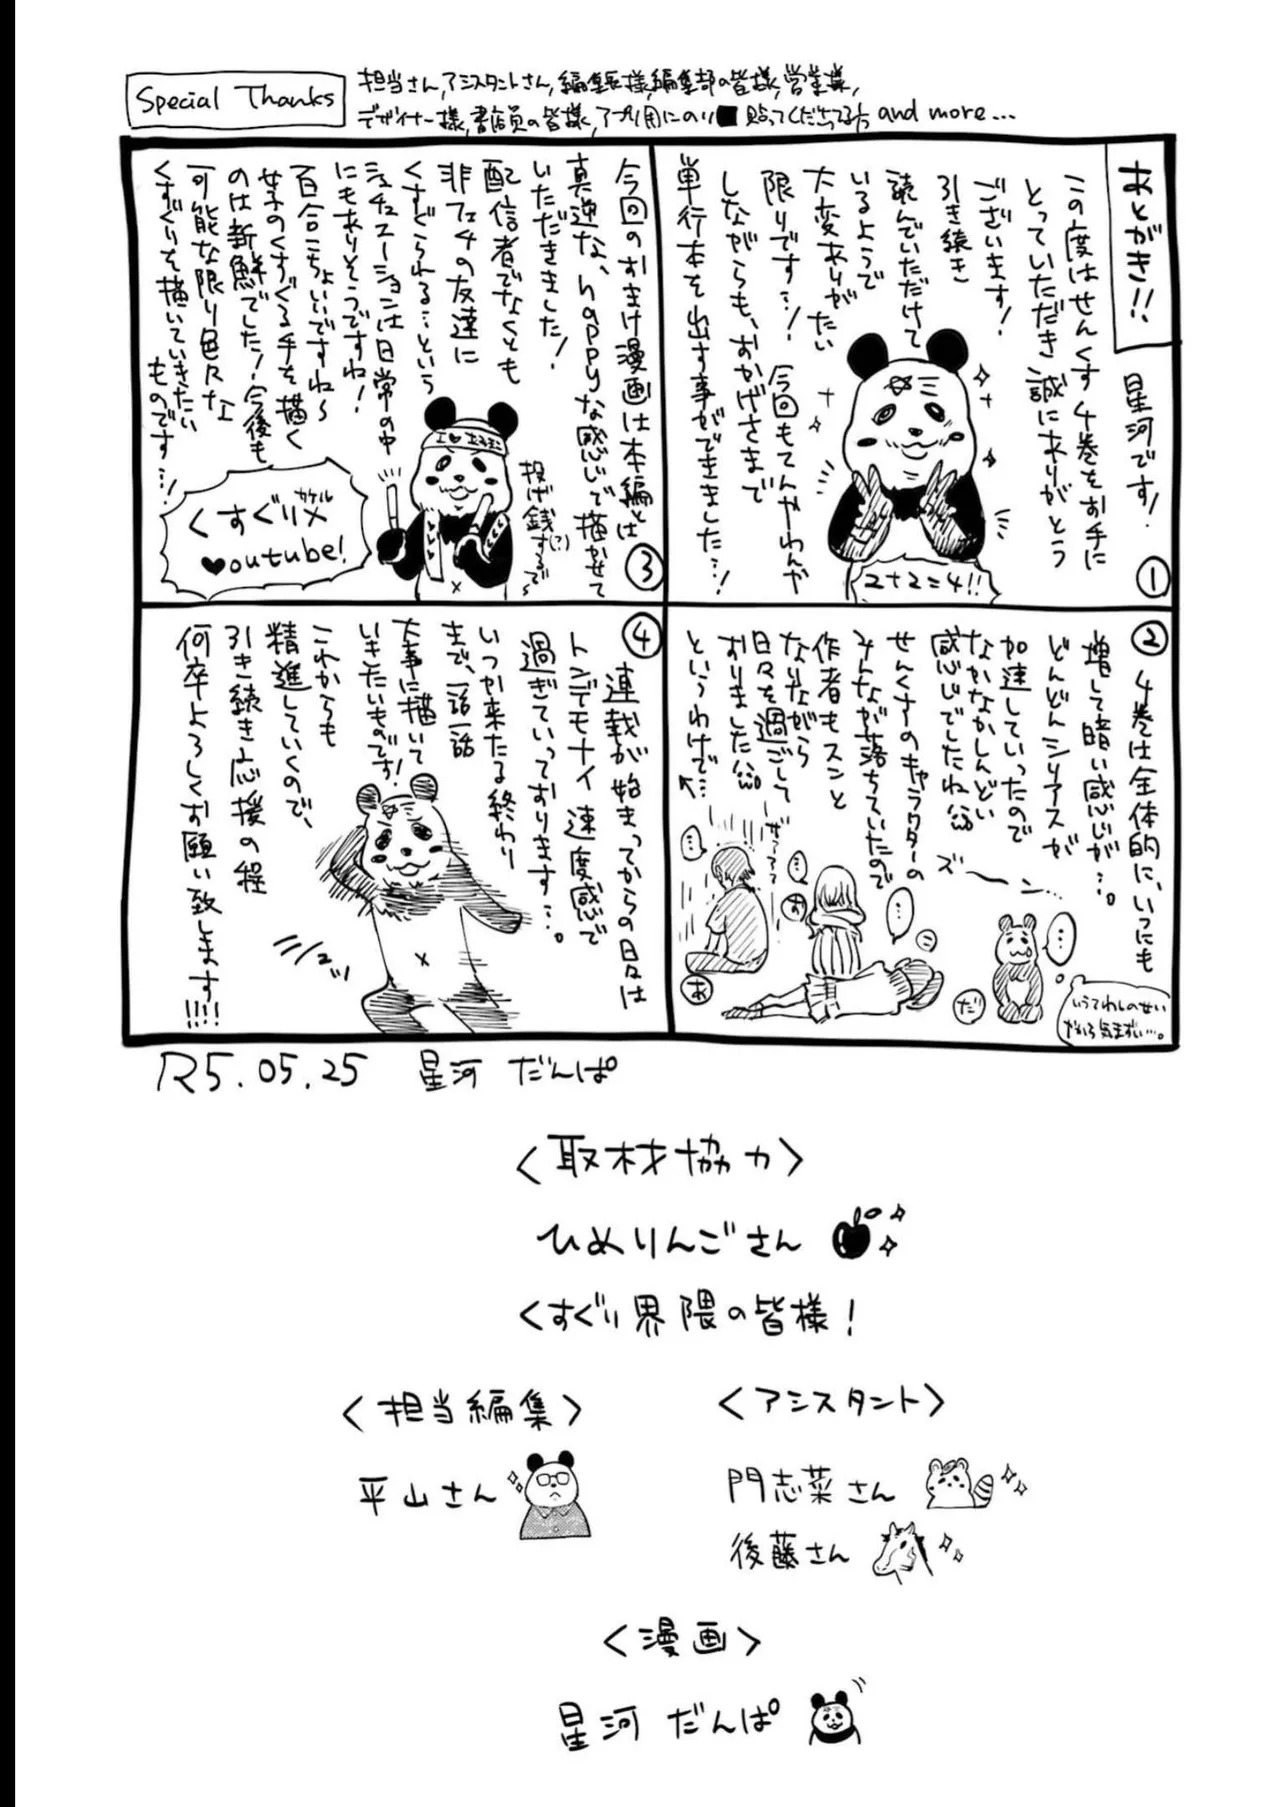 Special Thanks
担当さん,アシスタントさん,編集長様,編集部の皆様,営業様,
デザイナー様,書店員の皆様,アプリ用にのり■貼ってくださってる方 and more...
あとがき!!
星河です!
この度はせんくす4巻をお手に
とっていただき誠にありがとう
ございます!
引き続き
読んでいただけて
いるようで
大変ありがたい
限りです…! 今回もてんやわんや
しながらも、おかげさまで
単行本を出す事ができました…!
2+2=4!!
①
②
4巻は全体的に、いつにも
増して暗い感じが…。
どんどんシリアスが
加速していったので
なかなかしんどい
感じでしたね
せんくすのキャラクターの
みんなが落ちていたので
作者もスンと
なりながら
日々を過ごして
おりました
というわけで…
ズーン…
…
…
…
…
お
こ
あ
だ
いうてわしのせい
やから気まずい…。
③
今回のおまけ漫画は本編とは
真逆な、happyな感じで描かせて
いただきました!
配信者でなくとも
非フェチの友達に
くすぐられる…という
シチュエーションは日常の中
にもありそうですね!
百合こちょいいですね〜
女子のくすぐる手を描く
のは新鮮でした!今後も
可能な限り色々な
くすぐりを描いていきたい
ものです…!
投げ銭するで〜
(?)
くすぐり×
カケル
♥outube!
④
連載が始まってからの日々は
トンデモナイ速度感で
過ぎていっております…。
いつか来たる終わり
まで、一話一話
大事に描いて
いきたいものです!
これからも
精進していくので、
引き続き応援の程
何卒よろしくお願い致します!!!!
R5.05.25 星河 だんぱ
<取材協力>
ひめりんごさん
くすぐり界隈の皆様!
<担当編集>
平山さん
<アシスタント>
門志菜さん
後藤さん
<漫画>
星河 だんぱ